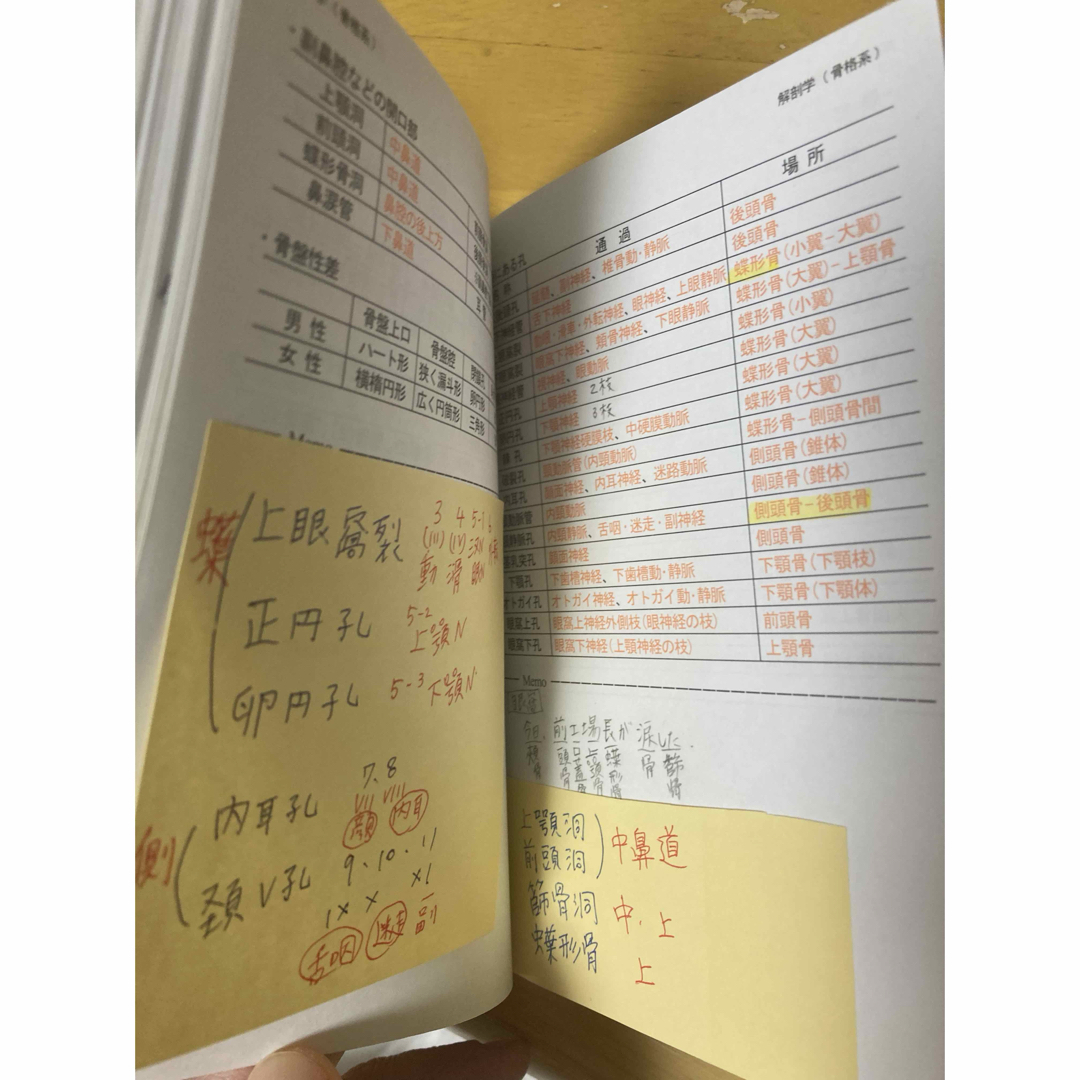 学（骨格系）
・副鼻腔などの開口部
上顎洞 中鼻道
前頭洞 中鼻道
蝶形骨洞 鼻腔の後上方
鼻涙管 下鼻道
・骨盤性差
骨盤上口 骨盤腔
男性 ハート形 狭く漏斗形 卵円形
女性 横楕円形 広く円筒形 三角形
Memo
蝶
上眼窩裂
3 4 5-1
(III) (IV)
動 滑
正円孔
5-2
上顎N
卵円孔
5-3 下顎N
側
内耳孔
7、8
VII VIII
顔 内耳
頚V孔
9、10、11
IX X XI
舌咽 迷走 副
解剖学（骨格系）
にある孔 通過 場所
副神経、椎骨動・静脈 後頭骨
舌下神経 後頭骨
動眼・滑車・外転神経、眼神経、上眼静脈 蝶形骨（小翼－大翼）
眼窩下神経、頬骨神経、下眼静脈 蝶形骨（大翼）－上顎骨
視神経、眼動脈 蝶形骨（小翼）
上顎神経 2枝 蝶形骨（大翼）
下顎神経 3枝 蝶形骨（大翼）
下顎神経硬膜枝、中硬膜動脈 蝶形骨（大翼）
頸動脈管（内頸動脈） 蝶形骨－側頭骨間
顔面神経、内耳神経、迷路動脈 側頭骨（錐体）
内頸動脈 側頭骨（錐体）
内頸静脈、舌咽・迷走・副神経 側頭骨－後頭骨
顔面神経 側頭骨
下顎孔 下歯槽神経、下歯槽動・静脈 下顎骨（下顎枝）
オトガイ孔 オトガイ神経、オトガイ動・静脈 下顎骨（下顎体）
眼窩上孔 眼窩上神経外側枝（眼神経の枝） 前頭骨
眼窩下孔 眼窩下神経（上顎神経の枝） 上顎骨
Memo
今日、前工場長が涙した。
上顎洞
前頭洞
中鼻道
篩骨洞 中、上
蝶形骨 上